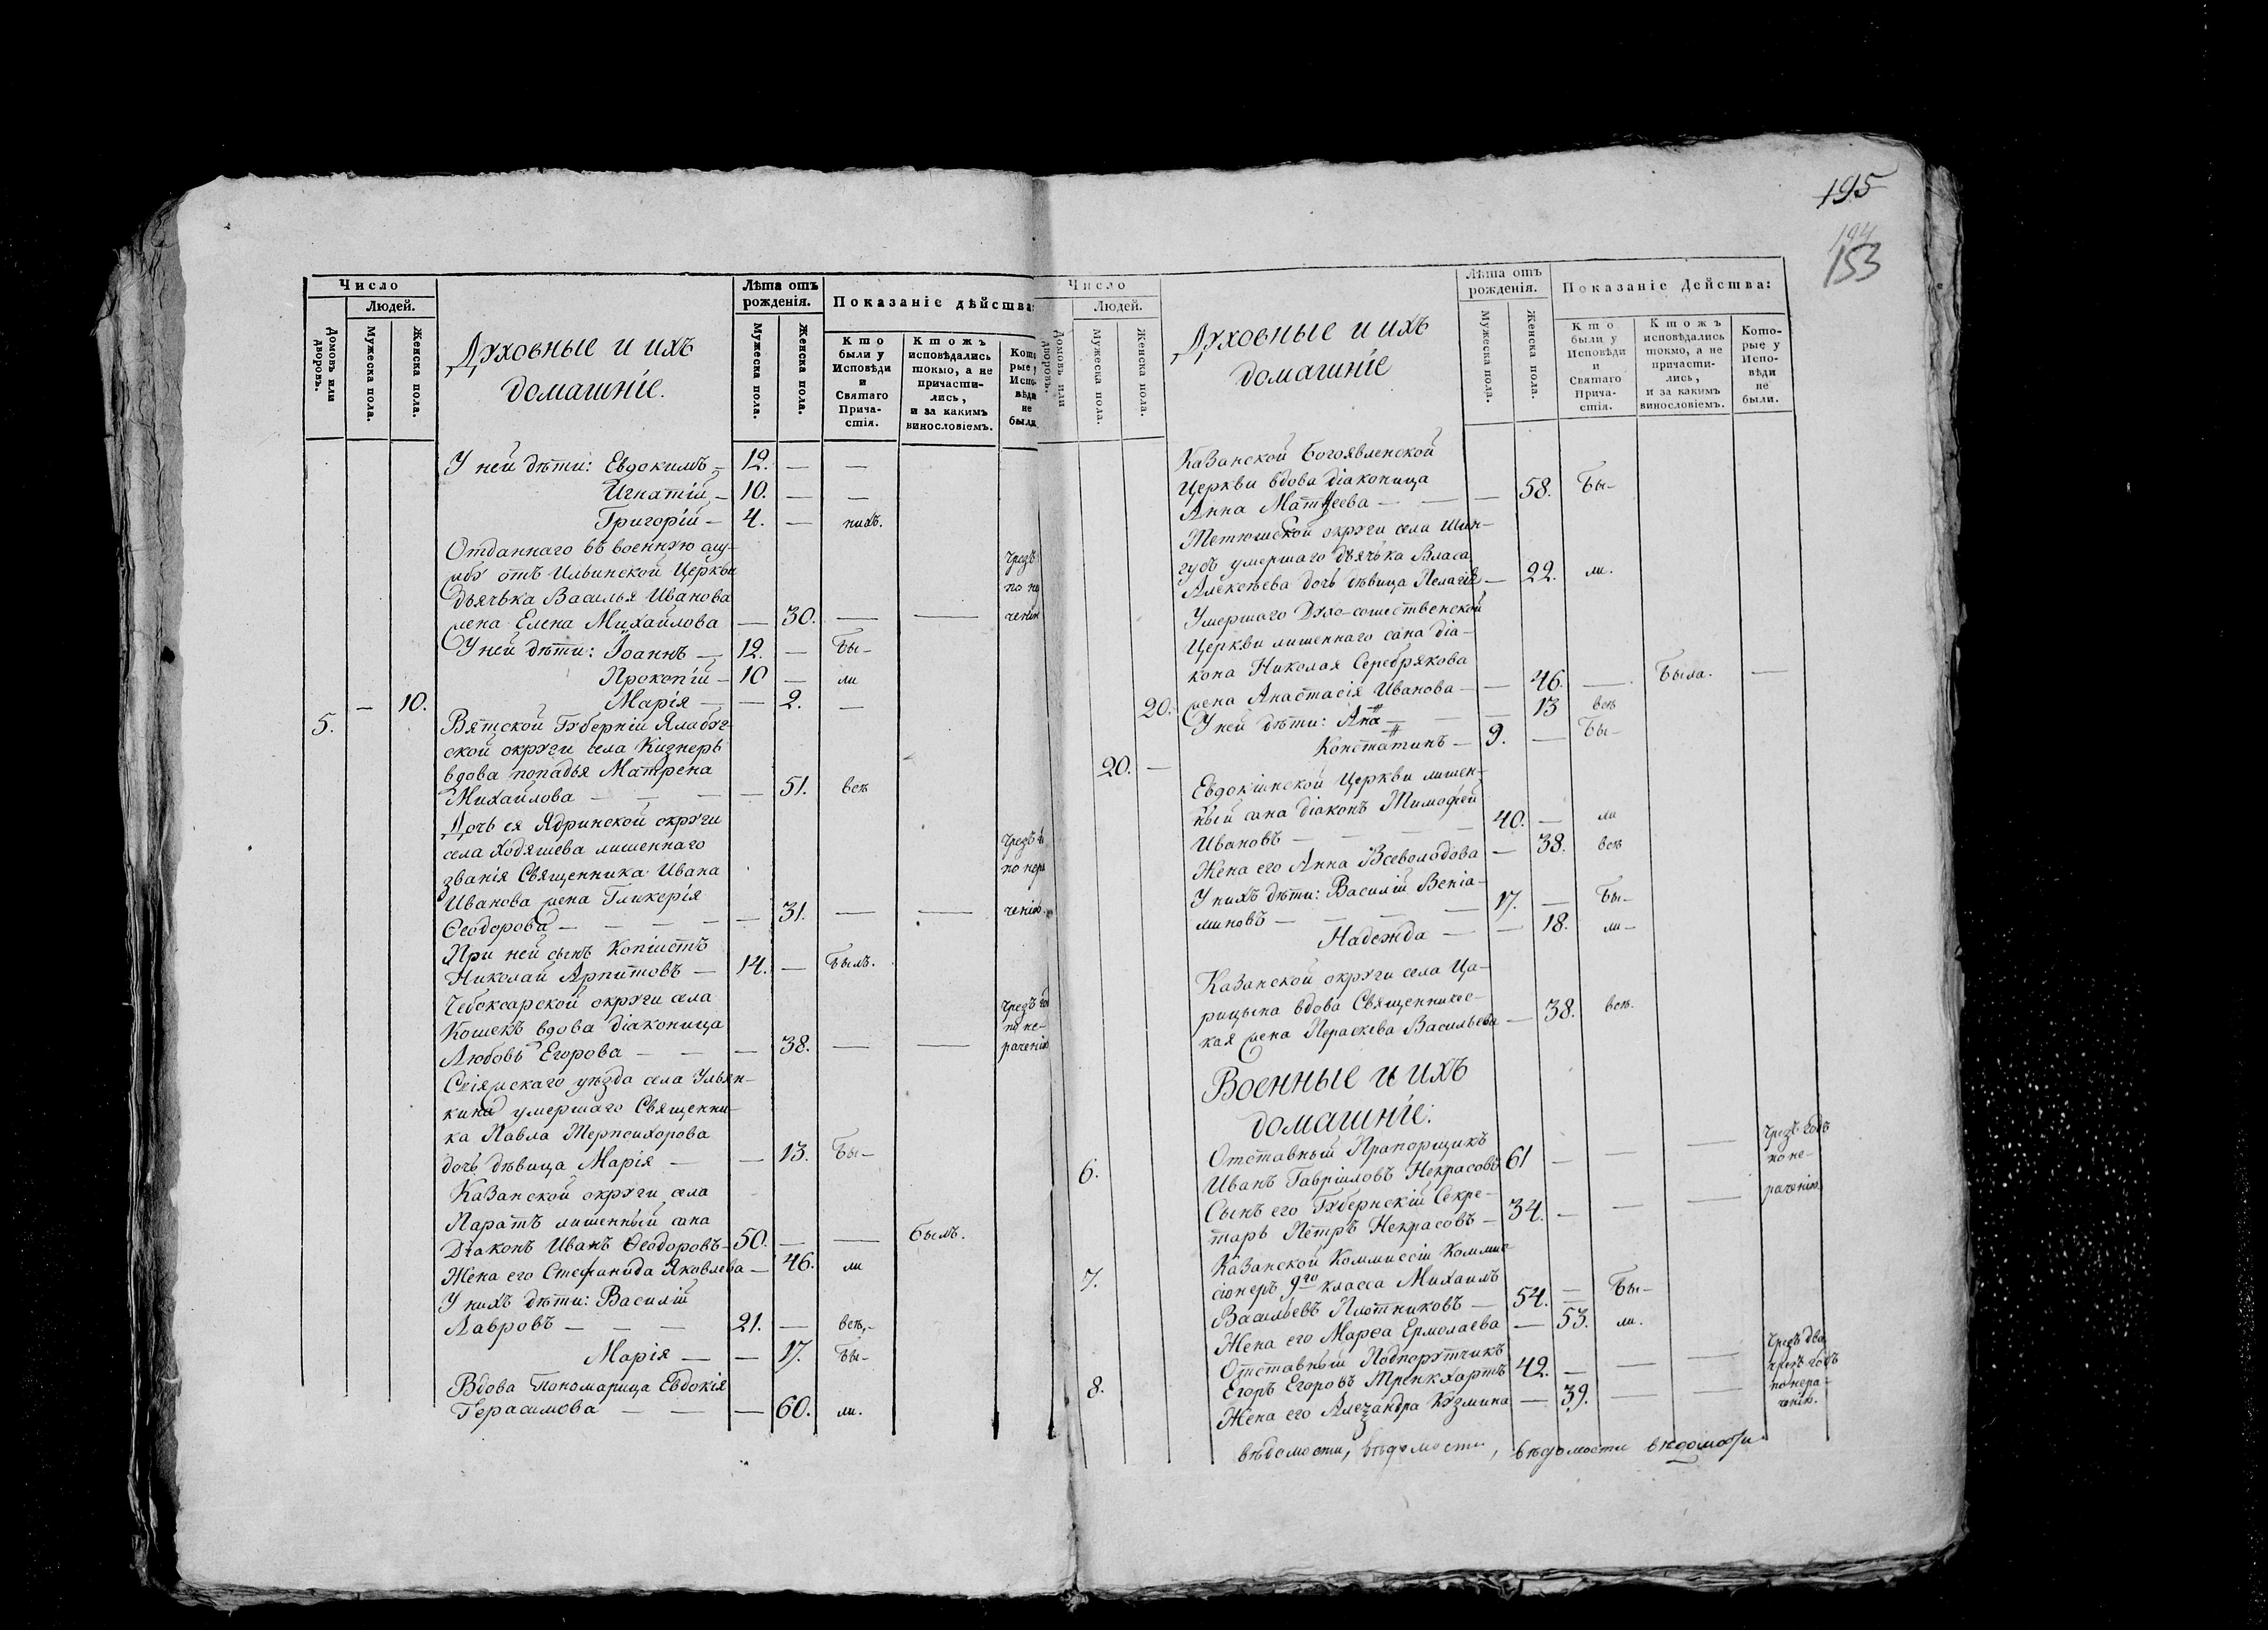 195
194
153
Число
Людей.
Домовъ или дворовъ.
Мужеска пола.
Женска пола.
Духовные и ихъ
домашніе.
Лѣта отъ
рожденія.
Мужеска пола.
Женска пола.
Показаніе дѣйства:
Кто
были у
Исповѣди
и
Святаго
Прича-
стія.
Ктожъ
исповѣдались
токмо, а не
причасти-
лись,
и за какимъ
винословіемъ.
Кото
рые у
Испо-
вѣди
не
были
У ней дѣти: Евдокимъ – 12. — —
Игнатій – 10. — —
Григорій – 4. — нихъ.
Отданнаго въ военную слу-
жбу отъ Ильинской Церкви чрезъ
дьячька Василья Иванова по не
жена Елена Михайлова — 30. — — ченію
У ней дѣти: Іоаннъ — 12. — Бы-
Прокопій – 10 — ли
— 10. Марія — — 2. —
5. Вятской Губерніи Ялабуг-
ской округи села Кизнеръ
вдова попадья Матрена
Михайлова — — — — 51. всѣ
Дочь ея Ядринской округи
села Ходяшева лишеннаго чрезъ
званія Священника Ивана по нера
Иванова жена Гликерія
Ѳеодорова — — — — — 31. — — ченію
При ней сынъ Копіистъ
Николай Архитовъ — 14. — Былъ.
Чебоксарской округи села чрезъ год
Кошекъ вдова діаконица по не-
Любовь Егорова — — — 38. — — раченію
Свіяжскаго уѣзда села Ульян-
кина умершаго Священни-
ка Павла Терпсихорова
дочь дѣвица Марія — — 13. Бы-
Казанской округи села
Паратъ лишенный сана
Діаконъ Иванъ Ѳеодоровъ – 50. — — былъ.
Жена его Стефанида Яковлева — 46. ли
У нихъ дѣти: Василій
Лавровъ — — — 21. — всѣ,-
Марія — — 17. Бы-
Вдова Пономарица Евдокія
Герасимова — — — 60. ли.
Число
Людей.
Домовъ или дворовъ.
Мужеска пола.
Женска пола.
Духовные и ихъ
домашніе
Лѣта отъ
рожденія.
Мужеска пола.
Женска пола.
Показаніе Действа:
Кто
были у
Исповѣди
и
Святаго
Прича-
стія.
Ктожъ
исповѣдались
токмо, а не
причасти-
лись,
и за какимъ
винословіемъ.
Кото-
рые у
Испо-
вѣди
не
были.
Казанской Богоявленской
Церкви вдова діаконица
Анна Матѳеева — — — 58. Бы-
Тетюшской округи села Шин-
гутъ умершаго дьячька Власа
Алексѣева дочь дѣвица Пелагія — 22. ли.
Умершаго Духо-сошественской
Церкви лишеннаго сана діа-
кона Николая Серебрякова
20. жена Анастасія Иванова — — 46. — Была. —
У ней дѣти: Ана — — — 13 всѣ
20. — Констатинъ — 9. — Бы-
Евдокіинской Церкви лишен-
ный сана діаконъ Тимофей
Ивановъ — — — — 40. — ли
Жена его Анна Всеволодова — 38. всѣ
У нихъ дѣти: Василій Веніа-
миновъ — — — — 17. — Бы-
Надежда — — 18. ли-
Казанской округи села Ца-
рицына вдова Священничес-
кая жена Параскева Васильева — 38. всѣ.
Военные и ихъ
домашніе.
Отставный Прапорщикъ чрезъ годъ
6. Иванъ Гавріиловъ Некрасовъ 61 — — — по не-
Сынъ его Губернскій Секре- раченію.
тарь Петръ Некрасовъ – 34. — — —
Казанской Коммиссіи Коммис-
7. сіонеръ 9го класса Михаилъ
Васильевъ Плотниковъ — 54. — Бы-
Жена его Марѳа Ермолаева — 53. ли.
Отставный Подпорутчикъ чрезъ два
8. Егоръ Егоровъ Тренкхартъ 42. — — — чрезъ годъ
Жена его Алеѯандра Кузмина — 39. — — по нера-
ченію.
вѣдомости, вѣдомости, вѣдомости вѣдомости